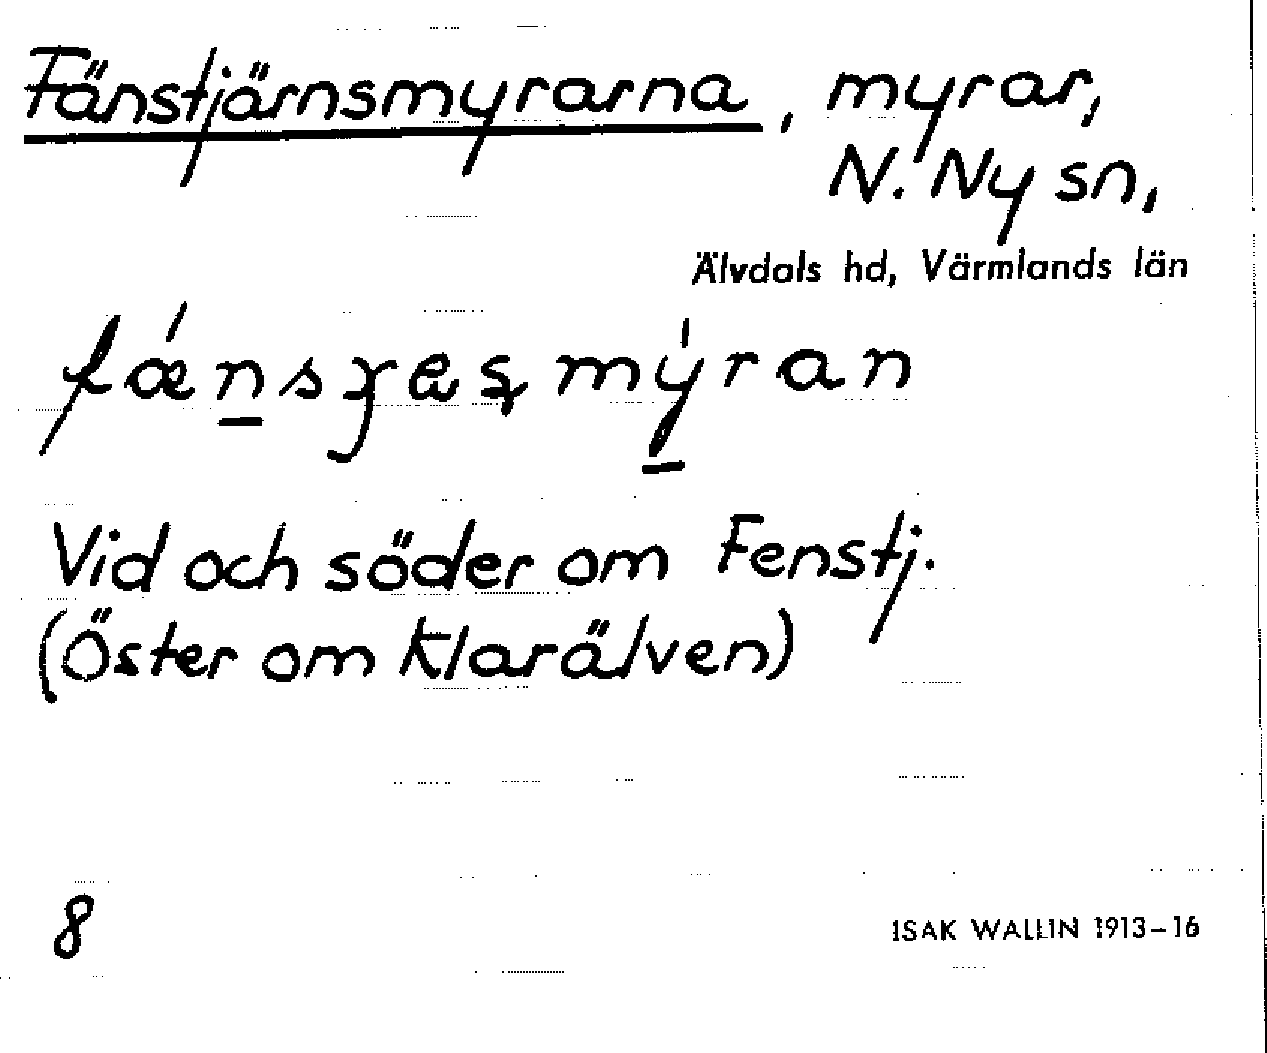 Fänstjärnsmyrarna, myrar,
N. Ny sn,
Älvdals hd, Värmlands län
Vid och söder om Fenstj.
(Öster om Klarälven)
8
ISAK WALLIN 1913-16